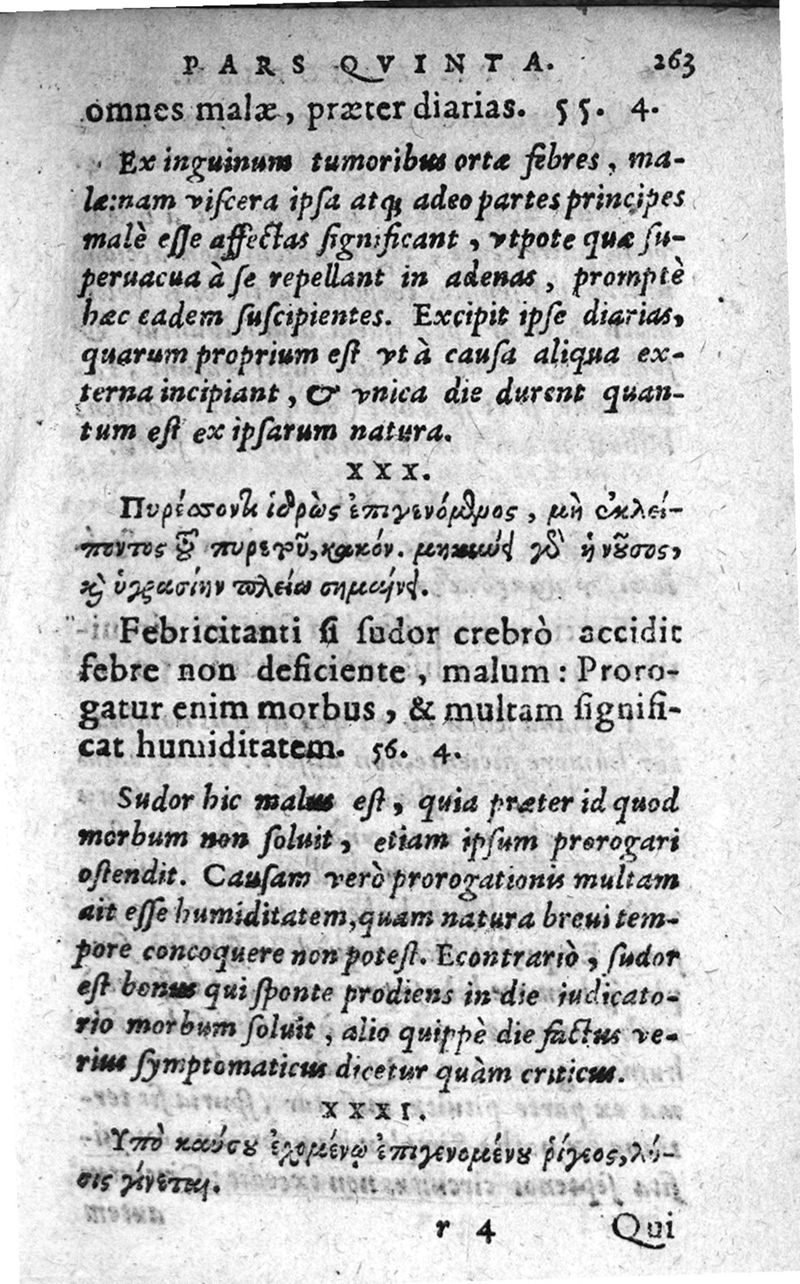 PARS QVINTA. 263
omnes malæ, præter diarias. 55. 4.
Ex inguinum tumoribus ortæ febres, ma-
læ: nam viſcera ipſa atq; adeo partes principes
malè eſſe affectas ſignificant, vtpote quæ ſu-
peruacua à ſe repellant in adenas, promptè
hæc eadem ſuſcipientes. Excipit ipſe diarias,
quarum proprium eſt vt à cauſa aliqua ex-
terna incipiant, & vnica die durent quan-
tum eſt ex ipſarum natura.
XXX.
Πυρέσσοντι ἱδρὼς ἐπιγενόμενος, μὴ ἐκλεί-
ποντος τοῦ πυρετοῦ, κακόν. μηκύνει γὰρ ἡ νοῦσος,
καὶ ὑγρασίην πλείω σημαίνει.
Febricitanti ſi ſudor crebrò accidit
febre non deficiente, malum: Proro-
gatur enim morbus, & multam ſignifi-
cat humiditatem. 56. 4.
Sudor hic malus eſt, quia præter id quod
morbum non ſoluit, etiam ipſum prorogari
oſtendit. Cauſam verò prorogationis multam
ait eſſe humiditatem, quam natura breui tem-
pore concoquere non poteſt. Econtrariò, ſudor
eſt bonus qui ſponte prodiens in die iudicato-
rio morbum ſoluit, alio quippè die factus ve-
rius ſymptomaticus dicetur quàm criticus.
XXXI.
Ὑπὸ καύσου ἐχομένῳ ἐπιγενομένου ῥίγεος, λύ-
σις γίνεται.
r 4 Qui